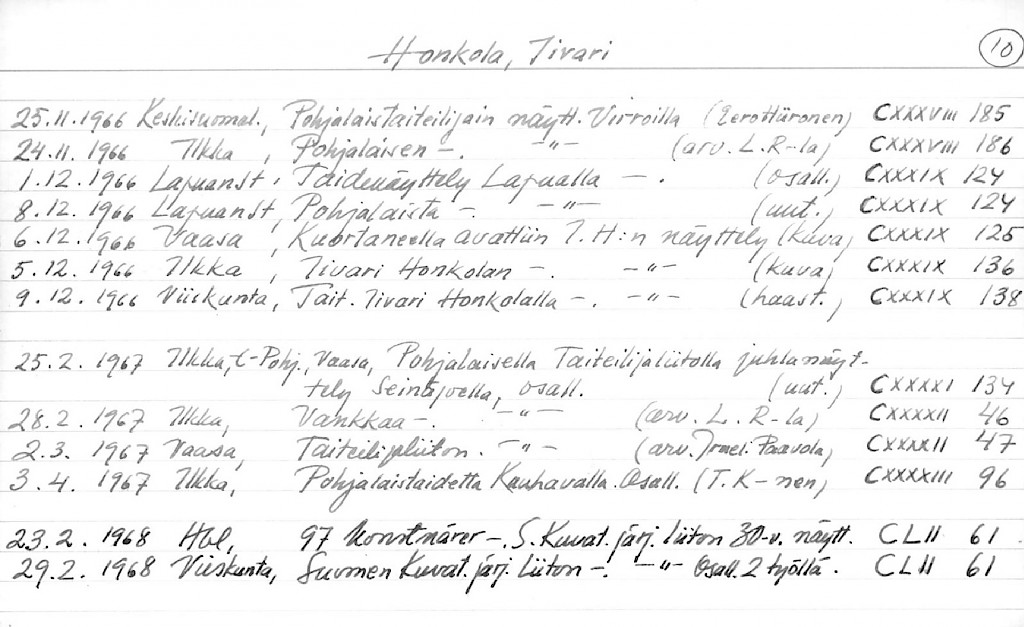 Honkola, Iivari 10
25.11.1966 Keskisuomal., Pohjalaistaiteilijain näytt. Virroilla (Eero Hüronen) CXXXVIII 185
24.11.1966 Ilkka, Pohjalaisen –. –"– (arv. L.R-la) CXXXVIII 186
1.12.1966 Lapuan St, Taidenäyttely Lapualla –. (osall.) CXXXIX 124
8.12.1966 Lapuan St, Pohjalaista –. –"– (uut.) CXXXIX 124
6.12.1966 Vaasa, Kuortaneella avattiin I.H:n näyttely (kuva) CXXXIX 125
5.12.1966 Ilkka, Iivari Honkolan –. –"– (kuva) CXXXIX 136
9.12.1966 Viiskunta, Tait. Iivari Honkolalla –. –"– (haast.) CXXXIX 138
25.2.1967 Ilkka, E-Pohj., Vaasa, Pohjalaisella Taiteilijaliitolla juhlanäyt-
tely Seinäjoella, osall. (uut.) CXXXXI 134
28.2.1967 Ilkka, Vankkaa –. –"– (arv. L.R-la) CXXXXII 46
2.3.1967 Vaasa, Taiteilijaliiton. –"– (arv. Irmeli Paavola) CXXXXII 47
3.4.1967 Ilkka, Pohjalaistaidetta Kauhavalla. Osall. (T.K-nen) CXXXXIII 96
23.2.1968 Hbl, 97 konstnärer –. S. Kuvat. järj. liiton 30-v. näytt. CLII 61
29.2.1968 Viiskunta, Suomen Kuvat. järj. Liiton –. –"– Osall. 2 työllä. CLII 61